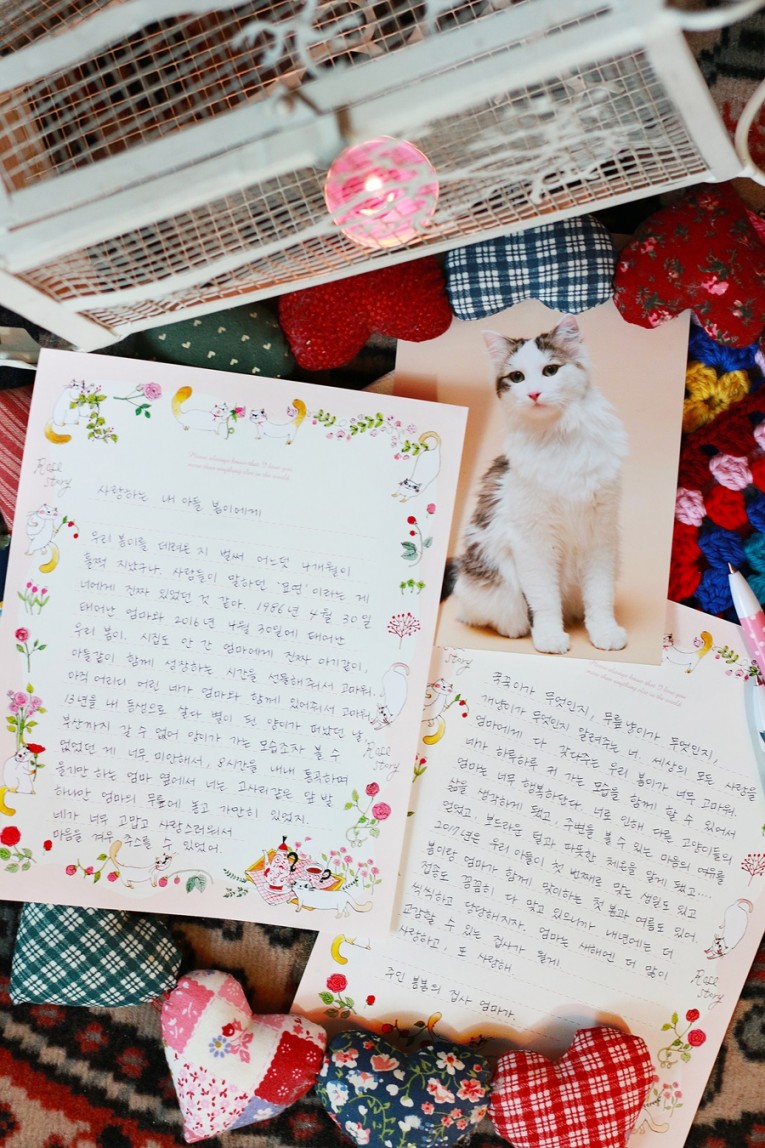 Rose
story
사랑하는 내 아들 봄이에게
우리 봄이를 데려온 지 벌써 어느덧 4개월이
훌쩍 지났구나. 사람들이 말하던 '묘연'이라는 게
너에게 진짜 있었던 것 같아. 1986년 4월 30일
태어난 엄마와 2016년 4월 30일에 태어난
우리 봄이. 시집도 안 간 엄마에게 진짜 아기같이,
아들같이 함께 성장하는 시간을 선물해줘서 고마워.
아직 어리디 어린 네가 엄마와 함께 있어줘서 고마워.
13년을 내 동생으로 살다 별이 된 양이가 떠났던 날,
부산까지 갈 수 없어 양이가 가는 모습조차 볼 수
없었던 게 너무 미안해서, 8시간을 내내 통곡하며
울기만 하는 엄마 옆에서 너는 고사리같은 앞 발
하나만 엄마의 무릎에 놓고 가만히 있었지.
네가 너무 고맙고 사랑스러워서
마음을 겨우 추스를 수 있었어.
Rose
story
story
쿡쿡이가 무엇인지, 무릎냥이가 무엇인지,
개냥이가 무엇인지 알려주는 너. 세상의 모든 사랑을
엄마에게 다 갖다주는 우리 봄이가 너무 고마워.
네가 하루하루 커 가는 모습을 함께 할 수 있어서
엄마는 너무 행복하단다. 너로 인해 다른 고양이들의
삶을 생각하게 됐고, 주변을 볼 수 있는 마음의 여유를
얻었고, 부드러운 털과 따뜻한 체온을 알게 됐고....
2017년은 우리 아들이 첫 번째로 맞는 생일도 있고
봄이랑 엄마가 함께 맞이하는 첫 봄과 여름도 있어.
접종도 꼼꼼히 다 맞고 있으니까 내년에는 더
씩씩하고 당당해지자. 엄마는 새해엔 더 많이
교감할 수 있는 집사가 될게
사랑하고, 또 사랑해
주인 봄봄의 집사 엄마가.
Rose
story